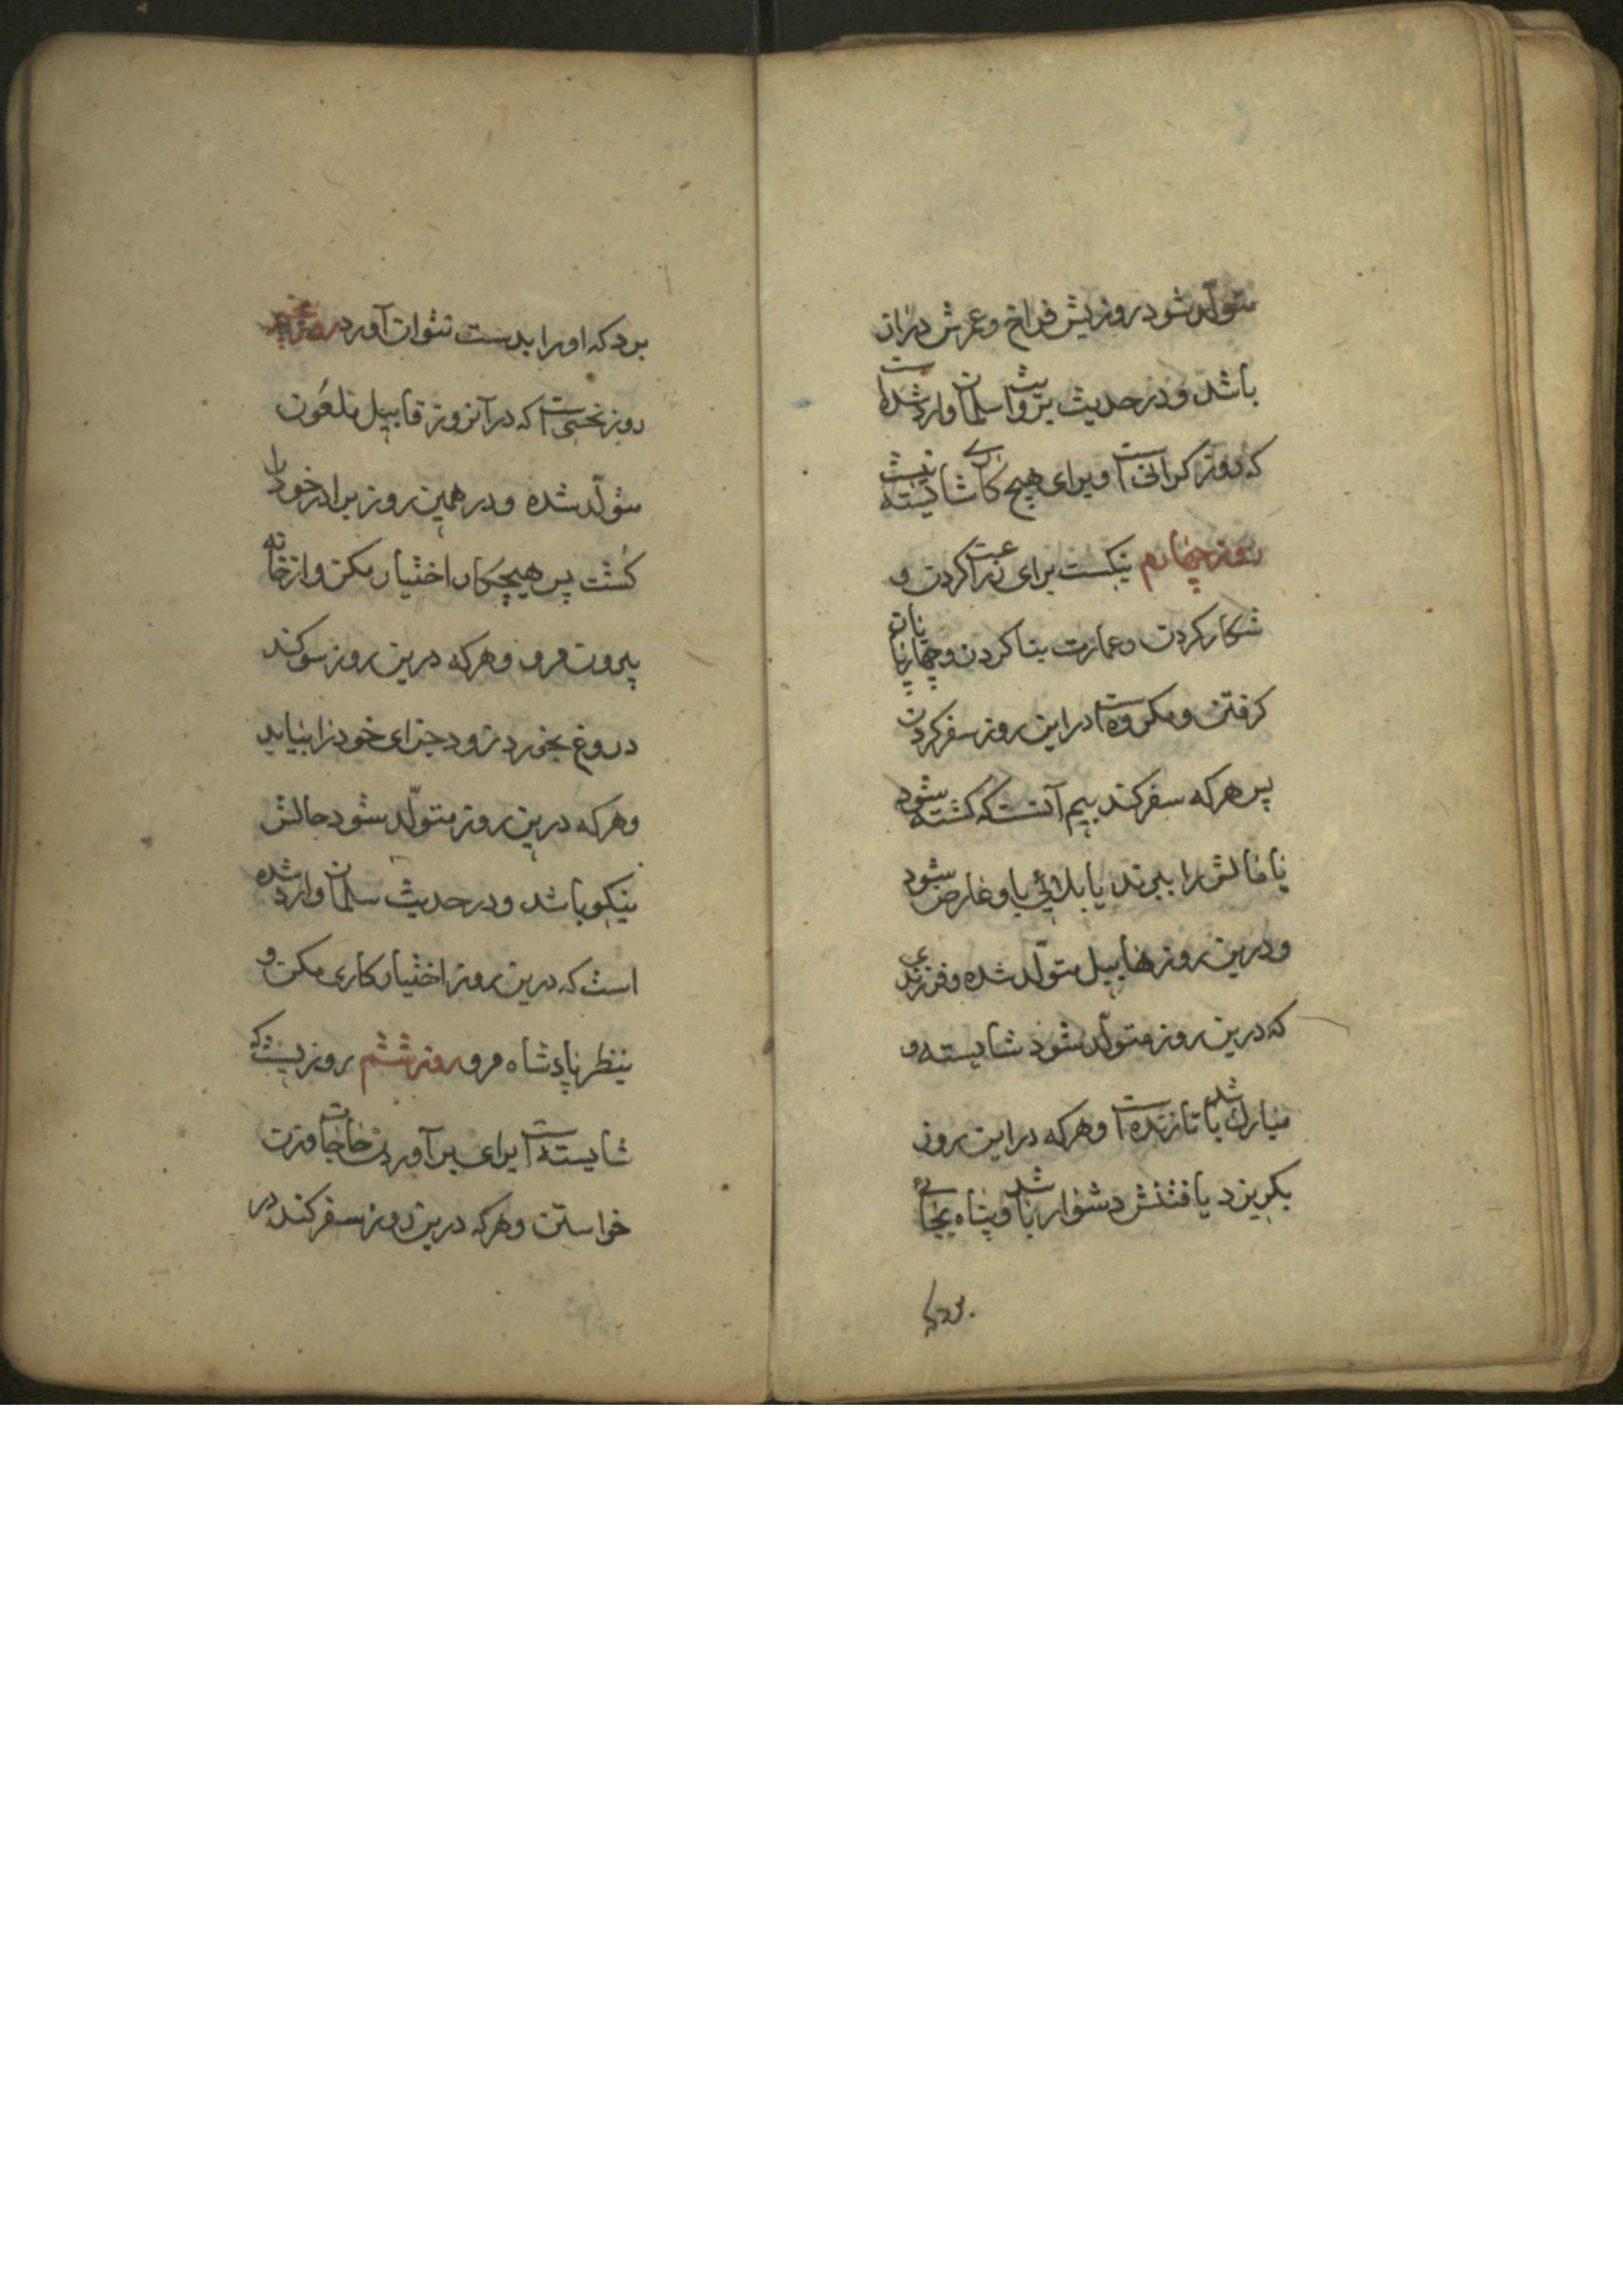 متولّد شود روزیش فراخ و عمرش دراز
باشد و در حدیث سلمان وارد شده است
که روز گرانی است و برای هیچ کاری شایسته نیست
روز چهارم نیکست برای زراعت کردن و
شکار کردن و عمارت بنا کردن و چهارپایان
گرفتن و مکروه است در این روز سفر کردن
پس هر که سفر کند بیم آنست که کشته شود
یا مالش را ببرند یا بلائی باو عارض شود
و درین روز هابیل متولّد شده و فرزندی
که درین روز متولّد شود شایسته و
مبارک باشد تا زنده است و هر که در این روز
بگریزد یافتنش دشوار باشد و پناه بجائی
برد که
برد که او را بدست نتوان آورد روز پنجم
روز نحسی است که در آنروز قابیل ملعون
متولّد شده و در همین روز برادر خود را
کشت پس هیچ کار اختیار مکن و از خانه
بیرون مرو و هر که درین روز سوکند
دروغ بخورد زود جزای خود را بیابد
و هر که درین روز متولّد شود حالش
نیکو باشد و در حدیث سلمان وارد شده
است که درین روز اختیار کاری مکن و
بنظر پادشاه مرو روز ششم روزیست که
شایسته است برای برآوردن حاجات و زن
خواستن و هر که درین روز سفر کند در